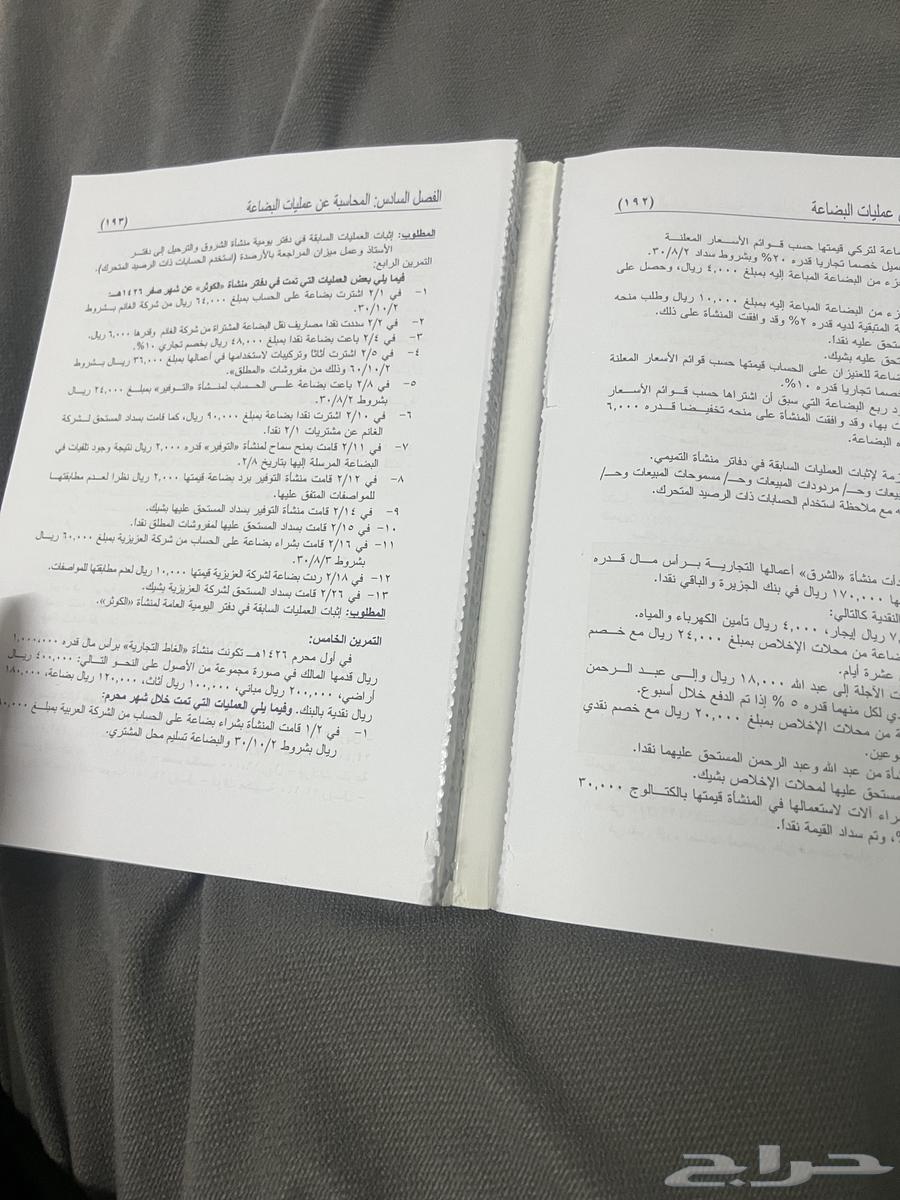 (١٩٢)
عمليات البضاعة
اعة لتركي قيمتها حسب قوائم الأسعار المعلنة
عميل خصما تجاريا قدره ٢٠% وبشروط سداد ٣٠/٨/٢.
زء من البضاعة المباعة إليه بمبلغ ٤,٠٠٠ ريال، وحصل على
زء من البضاعة المباعة إليه بمبلغ ١٠,٠٠٠ ريال وطلب منحه
ة المتبقية لديه قدره ٢% وقد وافقت المنشأة على ذلك.
ستحق عليه نقدا.
حق عليه بشيك.
ضاعة للعنيزان على الحساب قيمتها حسب قوائم الأسعار المعلنة
خصما تجاريا قدره ١٠%.
رد ربع البضاعة التي سبق أن اشتراها حسب قوائم الأسعار
ت بها، وقد وافقت المنشأة على منحه تخفيضا قدره ٦,٠٠٠
ه البضاعة.
زمة لإثبات العمليات السابقة في دفاتر منشأة التميمي.
بيعات وحـ/ مردودات المبيعات وحـ/ مسموحات المبيعات وحـ/
ه مع ملاحظة استخدام الحسابات ذات الرصيد المتحرك.
دأت منشأة «الشرق» أعمالها التجارية برأس مال قدره
ها ١٧٠,٠٠٠ ريال في بنك الجزيرة والباقي نقدا.
النقدية كالتالي:
٧, ريال إيجار، ٤,٠٠٠ ريال تأمين الكهرباء والمياه.
ضاعة من محلات الإخلاص بمبلغ ٢٤,٠٠٠ ريال مع خصم
عشرة أيام.
ت الآجلة إلى عبد الله ١٨,٠٠٠ ريال وإلى عبد الرحمن
ي لكل منهما قدره ٥ % إذا تم الدفع خلال أسبوع.
ة من محلات الإخلاص بمبلغ ٢٠,٠٠٠ ريال مع خصم نقدي
وعين.
شأة من عبد الله وعبد الرحمن المستحق عليهما نقدا.
مستحق عليها لمحلات الإخلاص بشيك.
راء آلات لاستعمالها في المنشأة قيمتها بالكتالوج ٣٠,٠٠٠
%، وتم سداد القيمة نقدا.
الفصل السادس: المحاسبة عن عمليات البضاعة
(١٩٣)
المطلوب: إثبات العمليات السابقة في دفتر يومية منشأة الشروق والترحيل إلى دفتر
الأستاذ وعمل ميزان المراجعة بالأرصدة (استخدم الحسابات ذات الرصيد المتحرك).
التمرين الرابع:
فيما يلي بعض العمليات التي تمت في دفاتر منشأة «الكوثر» عن شهر صفر ١٤٢٦هـ:
١- في ٢/١ اشترت بضاعة على الحساب بمبلغ ٦٤,٠٠٠ ريال من شركة الغانم بشروط
٣٠/١٠/٢.
٢- في ٢/٢ سددت نقدا مصاريف نقل البضاعة المشتراة من شركة الغانم وقدرها ٦,٠٠٠ ريال.
٣- في ٢/٤ باعت بضاعة نقدا بمبلغ ٤٨,٠٠٠ ريال بخصم تجاري ١٠%.
٤- في ٢/٥ اشترت أثاثا وتركيبات لاستخدامها في أعمالها بمبلغ ٣٦,٠٠٠ ريال بشروط
٦٠/١٠/٢ وذلك من مفروشات «المطلق».
٥- في ٢/٨ باعت بضاعة على الحساب لمنشأة «التوفير» بمبلغ ٢٤,٠٠٠ ريال
بشروط ٣٠/٨/٢.
٦- في ٢/١٠ اشترت نقدا بضاعة بمبلغ ٩٠,٠٠٠ ريال، كما قامت بسداد المستحق لشركة
الغانم عن مشتريات ٢/١ نقدا.
٧- في ٢/١١ قامت بمنح سماح لمنشأة «التوفير» قدره ٢,٠٠٠ ريال نتيجة وجود تلفيات في
البضاعة المرسلة إليها بتاريخ ٢/٨.
٨- في ٢/١٢ قامت منشأة التوفير برد بضاعة قيمتها ٢,٠٠٠ ريال نظرا لعدم مطابقتها
للمواصفات المتفق عليها.
٩- في ٢/١٤ قامت منشأة التوفير بسداد المستحق عليها بشيك.
١٠- في ٢/١٥ قامت بسداد المستحق عليها لمفروشات المطلق نقدا.
١١- في ٢/١٦ قامت بشراء بضاعة على الحساب من شركة العزيزية بمبلغ ٦٠,٠٠٠ ريال
بشروط ٣٠/٨/٣.
١٢- في ٢/١٨ ردت بضاعة لشركة العزيزية قيمتها ١٠,٠٠٠ ريال لعدم مطابقتها للمواصفات.
١٣- في ٢/٢٦ قامت بسداد المستحق لشركة العزيزية بشيك.
المطلوب: إثبات العمليات السابقة في دفتر اليومية العامة لمنشأة «الكوثر».
التمرين الخامس:
في أول محرم ١٤٢٦هـ تكونت منشأة «الغاط التجارية» برأس مال قدره ١,٠٠٠,٠٠٠
ريال قدمها المالك في صورة مجموعة من الأصول على النحو التالي: ٤٠٠,٠٠٠ ريال
أراضي، ٢٠٠,٠٠٠ ريال مباني، ١٠٠,٠٠٠ ريال أثاث، ١٢٠,٠٠٠ ريال بضاعة، ١٨٠,٠٠٠
ريال نقدية بالبنك. وفيما يلي العمليات التي تمت خلال شهر محرم:
١- في ١/٢ قامت المنشأة بشراء بضاعة على الحساب من الشركة العربية بمبلغ
ريال بشروط ٣٠/١٠/٢ والبضاعة تسليم محل المشتري.
حراج